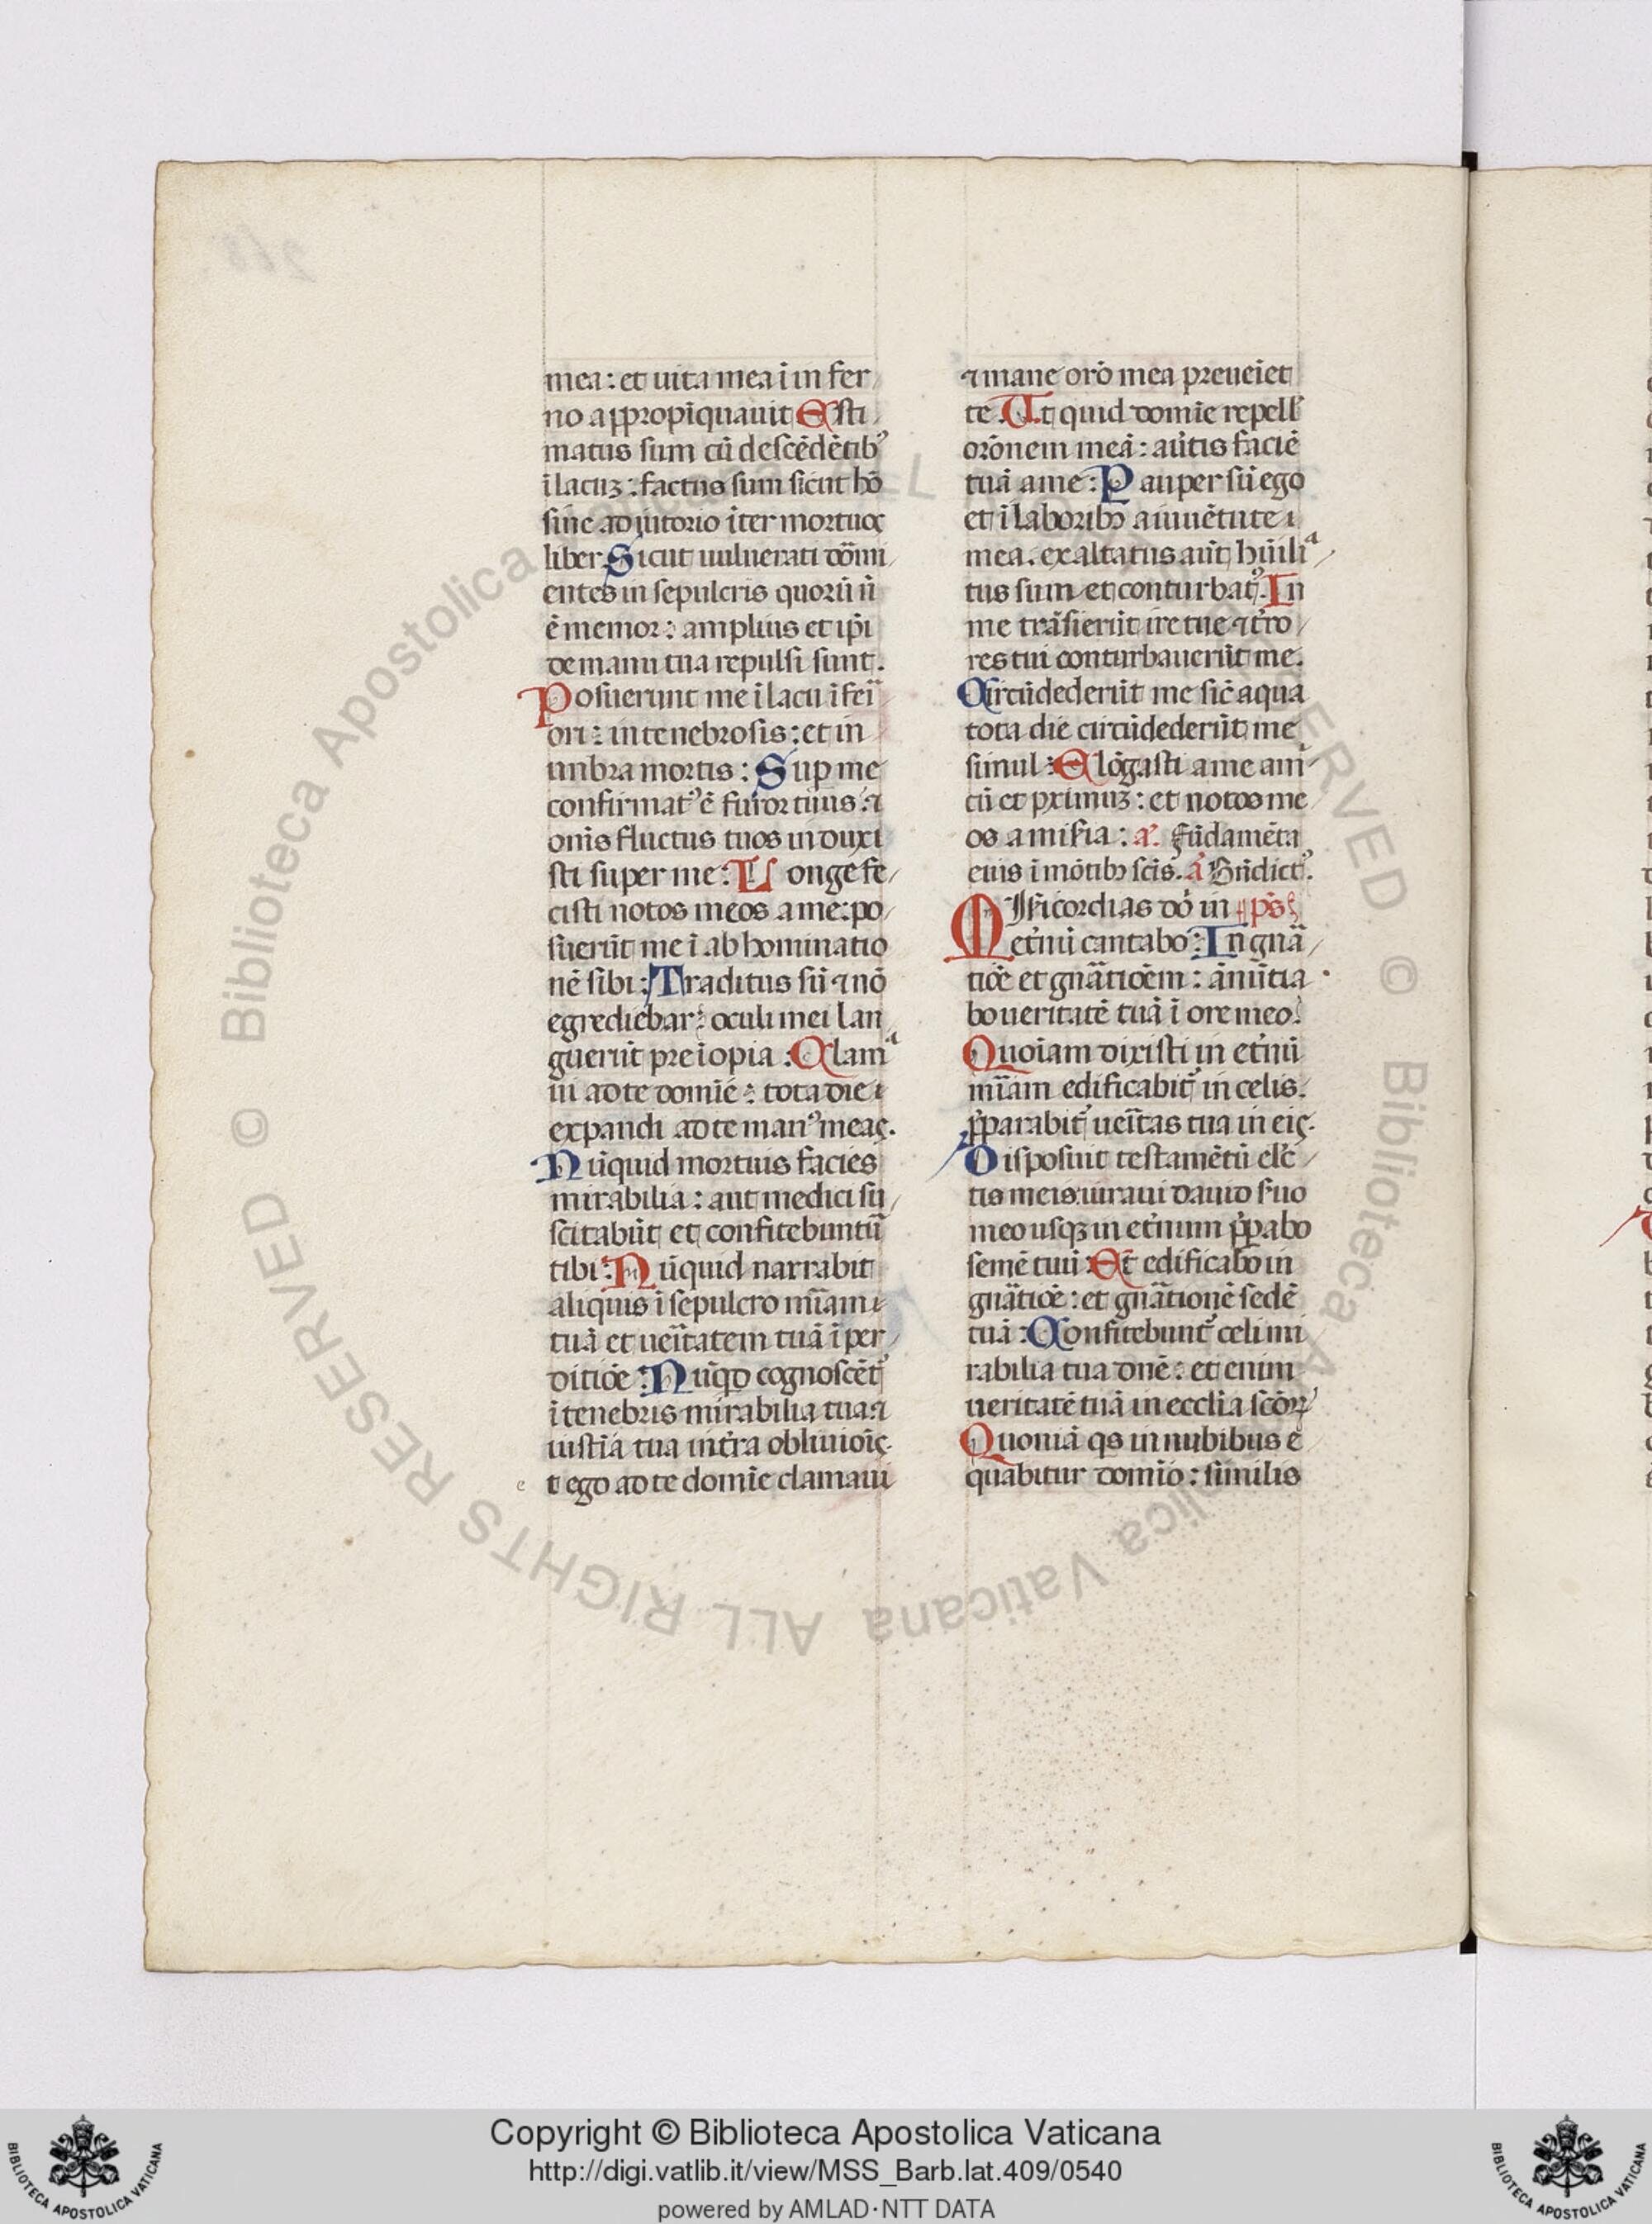 mea: et uita mea ī in fer
no appropīquauit Esti
matus sum cū descēdētib⁹
ī lacuȝ: factus sum sicut hō
sine adiutorio īter mortuoꝝ
liber. Sicut uulnerati dōmi
entes in sepulcris quorū nō
ē memor: amplius et ip̄i
de manu tua repulsi sunt.
Posuerunt me ī lacu īferi
ori: in tenebrosis: et in
umbra mortis: Sup̱ me
confirmat⁹ ē furor tuus: ⁊
om̄s fluctus tuos induxi
sti super me: Longe fe
cisti notos meos a me: po
suerūt me ī abhominatio
nē sibi: Traditus sū ⁊ nō
egrediebar: oculi mei lan
guerūt pre īopia: Clama
ui ad te domīe: tota die
expandi ad te man⁹ meas.
Nūquid mortuis facies
mirabilia: aut medici su
scitabūt et confitebuntū
tibi: Nūquid narrabit
aliquis ī sepulcro mīam
tuā et ueītatem tuā ī per
ditiōe: Nūqd cognoscēt᷑
ī tenebris mirabilia tua: ⁊
iustīa tua in t̄ra obliuiōis.
e
t ego ad te domīe clamaui
⁊ mane orō mea preueīet
te. Ut quid domīe repell᷑
orōnem meā: au᷑tis faciē
tuā a me: Pauper sū ego
et ī laborib⁹ a iuuētute
mea. exaltatus aūt hūilia
tus sum et conturbat⁹. In
me trāsierūt ire tue ⁊ t᷑ro
res tui conturbauerūt me.
Circūdederūt me sic̄ aqua
tota die circūdederūt me
simul: Elōgasti a me ami
cū et ꝓximuȝ: et notos me
os a mis̄ia: a᷑. Fūdamēta
eius ī mōtib⁹ sc̄is. ā Bn̄dict⁹.
Mis̄icordias dō in ps̄
et᷑nū cantabo: In gnā
tiōe et gnātiōem: ānūtia
bo ueritatē tuā ī ore meo.
Quoīam dixisti in et᷑nū
mīam edificabit᷑ in celis.
p̄parabit᷑ ueītas tua in eis.
Disposuit testamētū elc̄
tis meis. iuraui dauid s᷑uo
meo usqȝ in et᷑num p̄pabo
semē tuū: Et edificabo in
gnātiōe: et gnātionē sedē
tuā: Confitebunt᷑ celi mi
rabilia tua dn̄e: et enim
ueritatē tuā in eccl̄ia sc̄oꝝ
Quoniā qs in nubibus e
quabitur domīo: similis
© Biblioteca Apostolica Vaticana ALL RIGHTS RESERVED
© Biblioteca Apostolica Vaticana ALL RIGHTS RESERVED
Copyright © Biblioteca Apostolica Vaticana
http://digi.vatlib.it/view/MSS_Barb.lat.409/0540
powered by AMLAD·NTT DATA
BIBLIOTECA APOSTOLICA VATICANA
BIBLIOTECA APOSTOLICA VATICANA